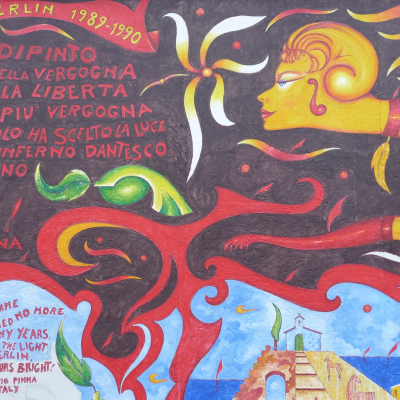 ERLIN 1989-1990
DIPINTO
ELLA VERGOGNA
LA LIBERTA
PIU' VERGOGNA
OLO HA SCELTO LA LUCE
INFERNO DANTESCO
NO
NA
AME
ED NO MORE
NY YEARS.
THE LIGHT
ERLIN,
URS BRIGHT!
IO PIMMA
TALY